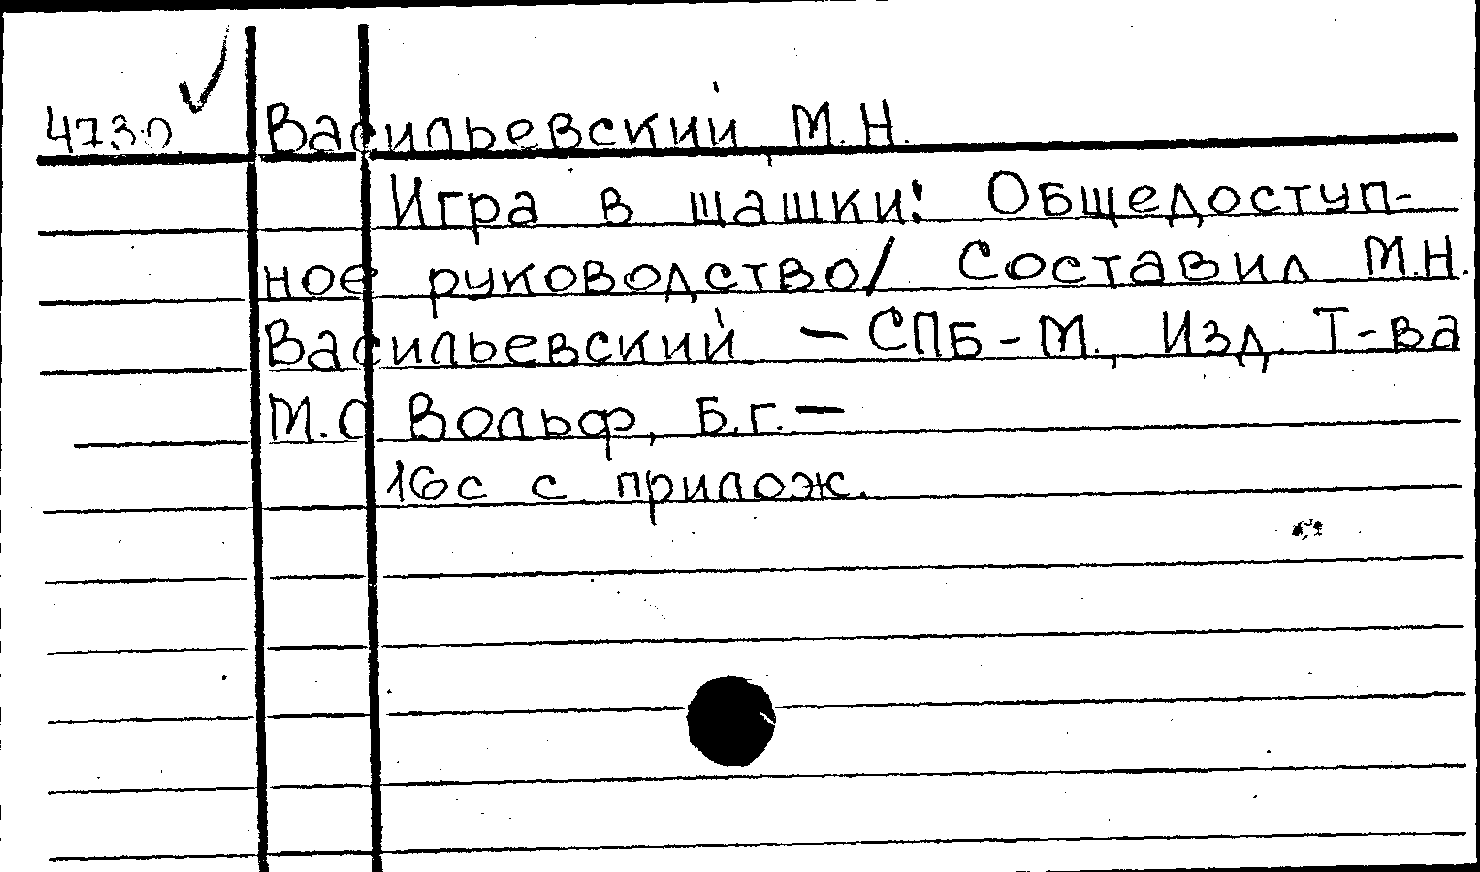 4730 Васильевский М.Н.
Игра в шашки: Общедоступ-
ное руководство/ Составил М.Н.
Васильевский — СПБ-М., Изд. Т-ва
М.О Вольф, Б.г. —
16с с прилож.